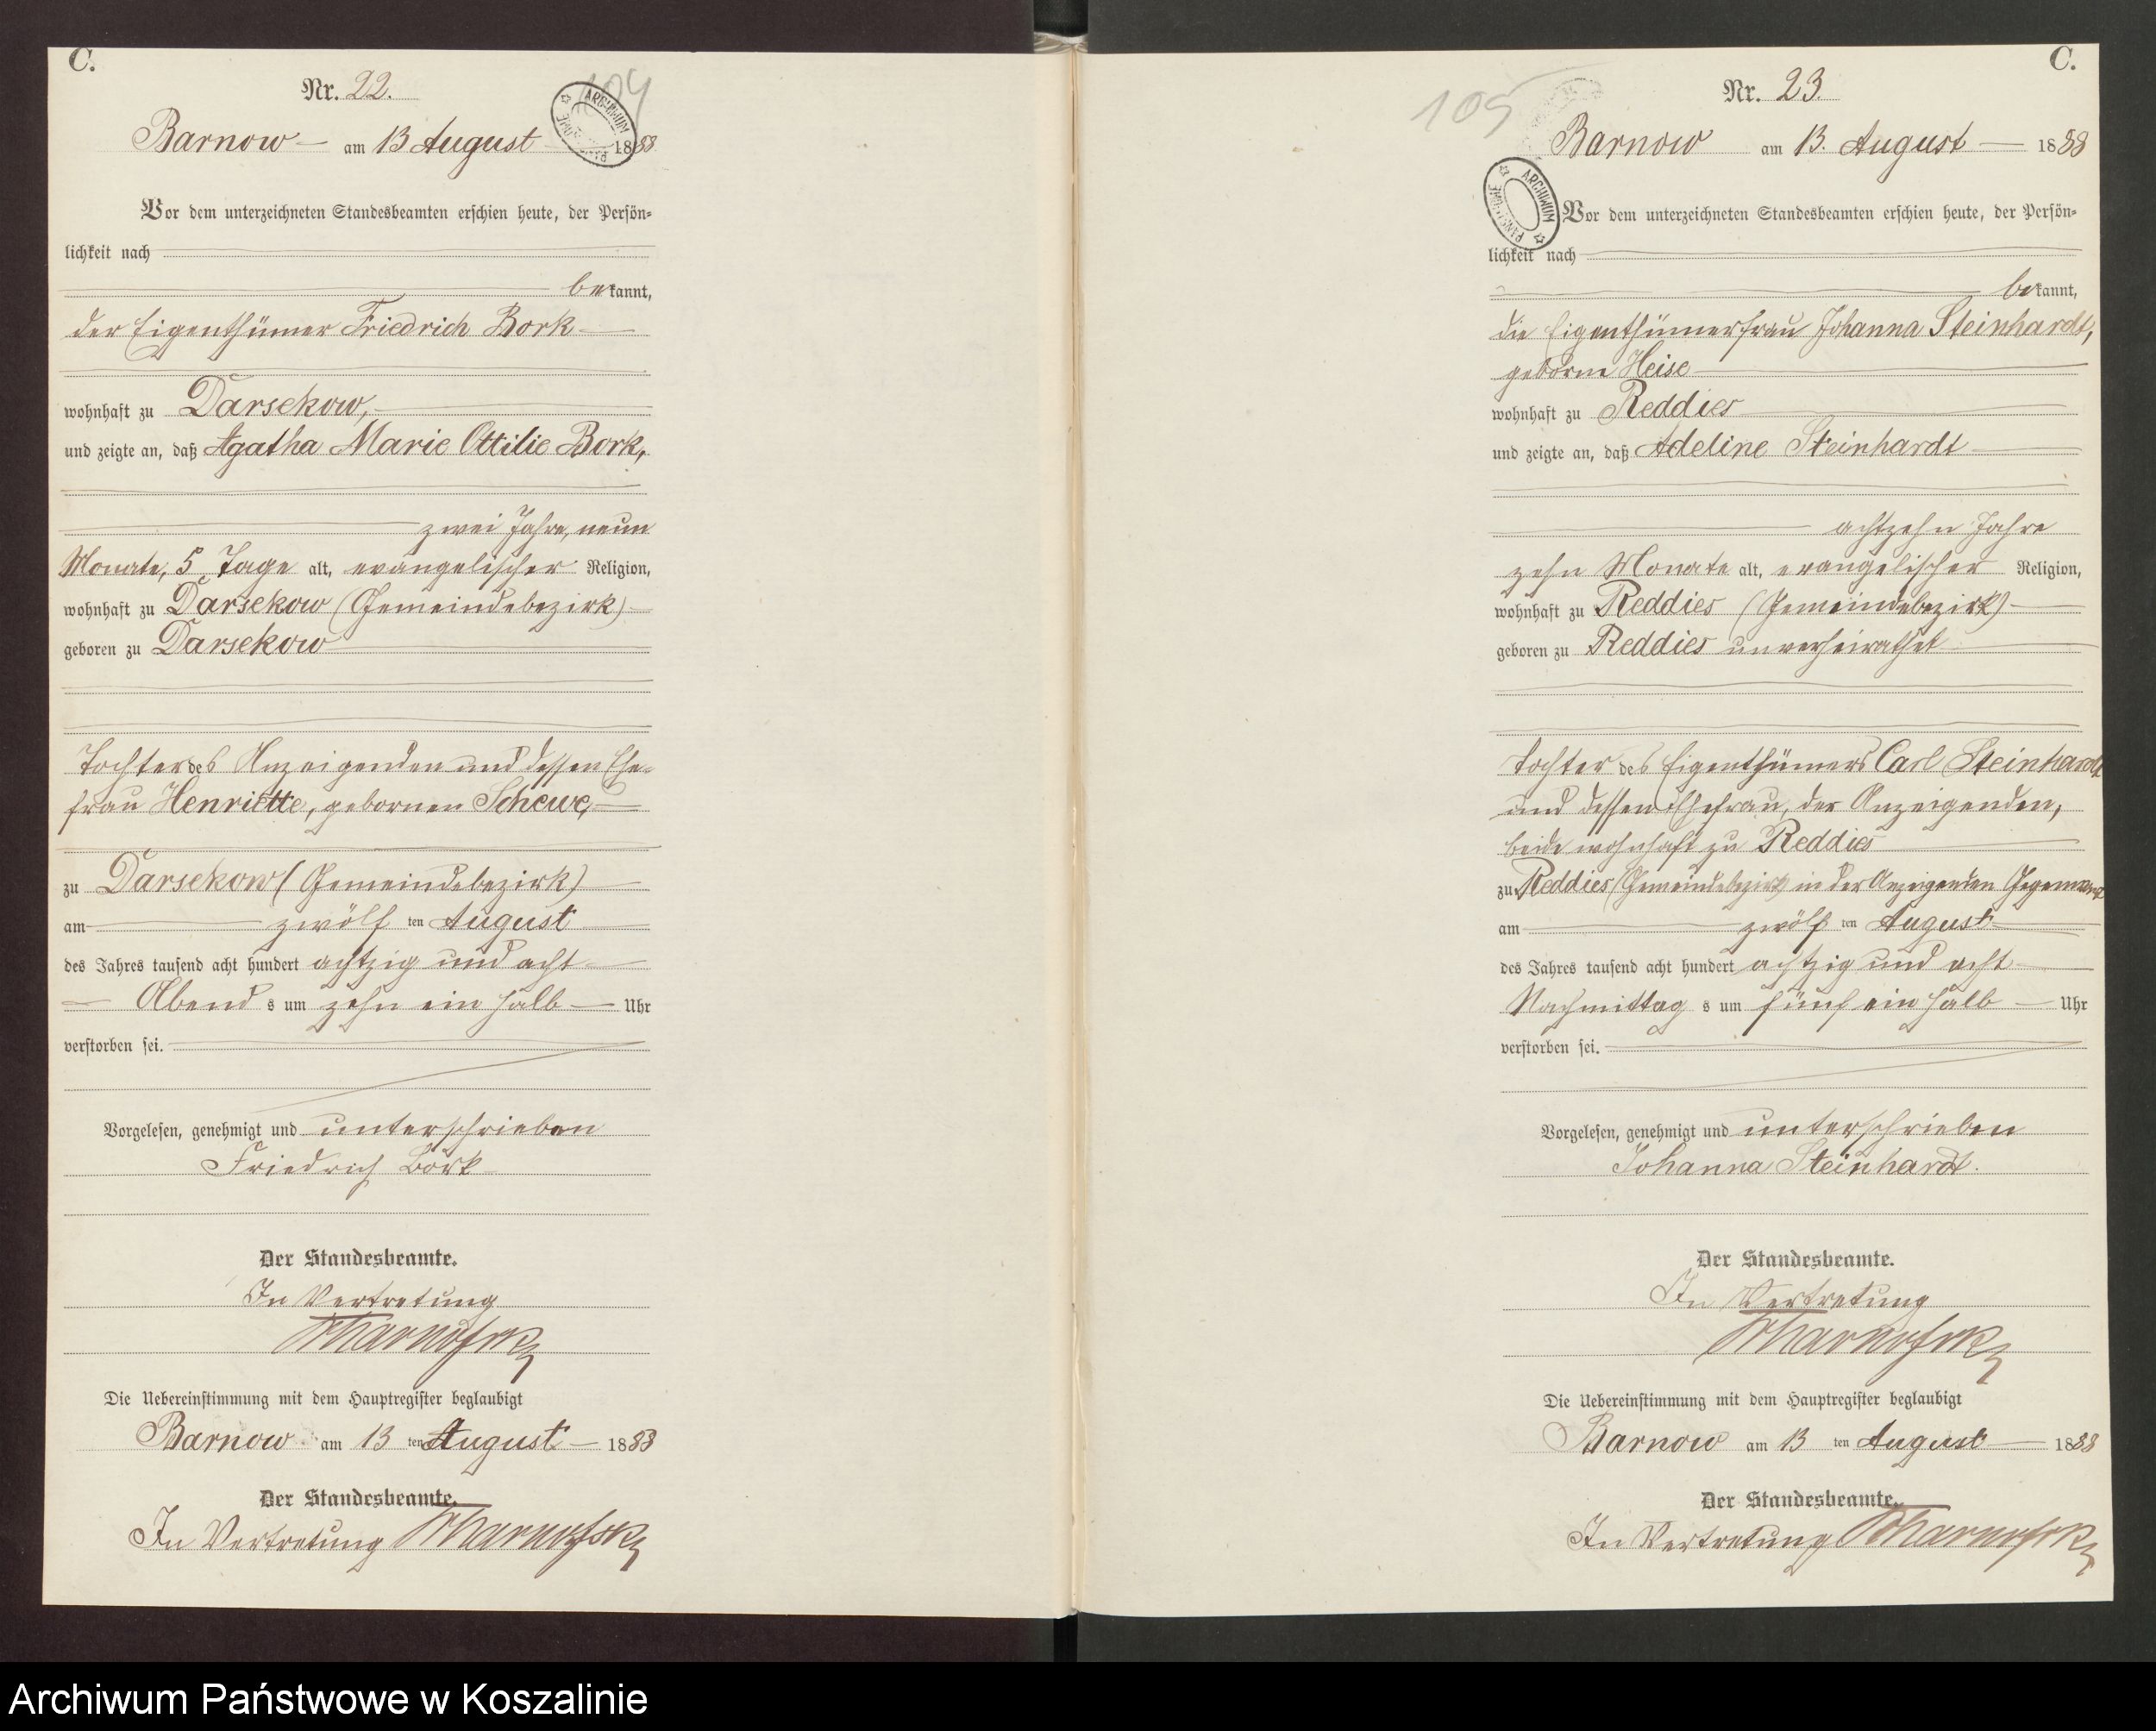 C.
Nr. 22.
104
ARCHIWUM
Barnow am 13 August 1888
Vor dem unterzeichneten Standesbeamten erschien heute, der Persön-
lichkeit nach
bekannt,
der Eigenthümer Friedrich Bork
wohnhaft zu Darsekow,
und zeigte an, daß Agatha Marie Ottilie Bork,
zwei Jahre, neun
Monate, 5 Tage alt, evangelischer Religion,
wohnhaft zu Darsekow (Gemeindebezirk)
geboren zu Darsekow
Tochter des Anzeigenden und dessen Ehe-
frau Henriette, gebornen Schewe,
zu Darsekow (Gemeindebezirk)
am zwölf ten August
des Jahres tausend acht hundert achtzig und acht
Abend s um zehn ein halb Uhr
verstorben sei.
Vorgelesen, genehmigt und unterschrieben
Friedrich Bork
Der Standesbeamte.
In Vertretung
Die Uebereinstimmung mit dem Hauptregister beglaubigt
Barnow am 13 ten August 1888
Der Standesbeamte.
In Vertretung
C.
Nr. 23.
105
ARCHIWUM
Barnow am 13. August 1888
Vor dem unterzeichneten Standesbeamten erschien heute, der Persön-
lichkeit nach
bekannt,
die Eigenthümerfrau Johanna Steinhardt,
geborne Heise
wohnhaft zu Reddies
und zeigte an, daß Adeline Steinhardt
achtzehn Jahre
zehn Monate alt, evangelischer Religion,
wohnhaft zu Reddies (Gemeindebezirk)
geboren zu Reddies unverheirathet
Tochter des Eigenthümers Carl Steinhardt
und dessen Ehefrau, der Anzeigenden,
beide wohnhaft zu Reddies
zu Reddies (Gemeindebezirk) in der Anzeigenden Gegenwart
am zwölf ten August
des Jahres tausend acht hundert achtzig und acht
Nachmittag s um fünf ein halb Uhr
verstorben sei.
Vorgelesen, genehmigt und unterschrieben
Johanna Steinhardt.
Der Standesbeamte.
In Vertretung
Die Uebereinstimmung mit dem Hauptregister beglaubigt
Barnow am 13 ten August 1888
Der Standesbeamte.
In Vertretung
Archiwum Państwowe w Koszalinie